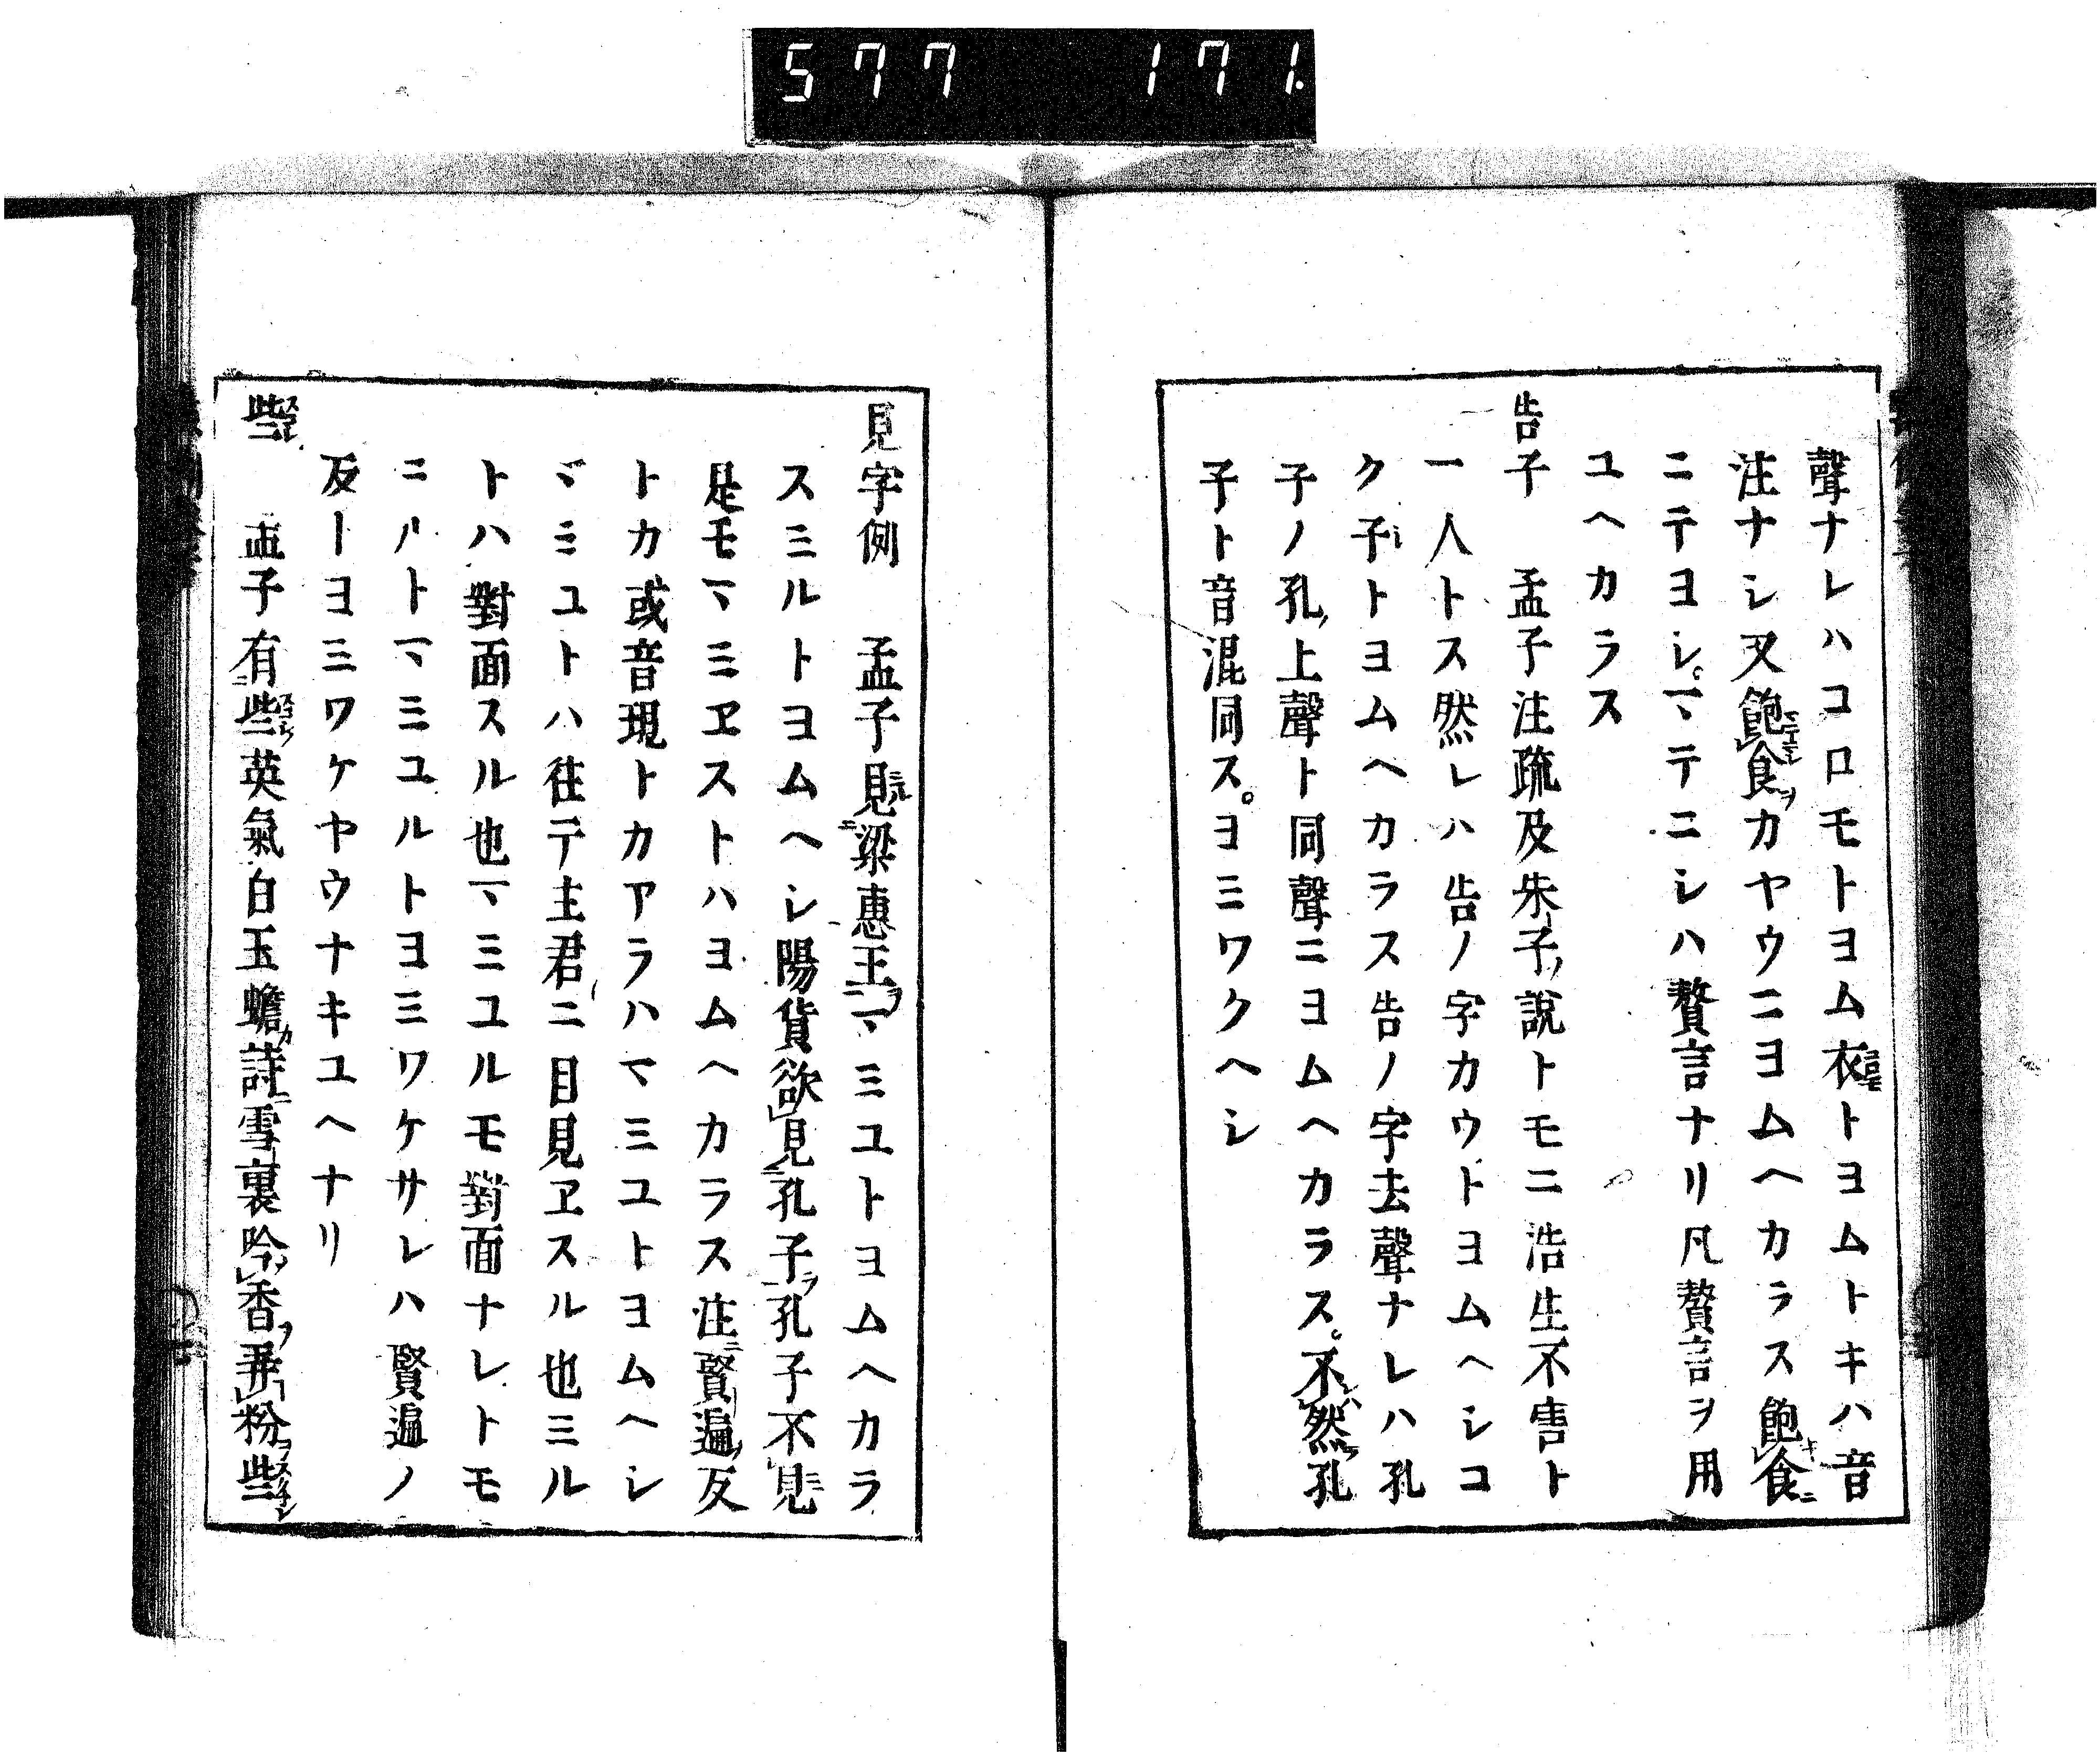 577 171.
聲ナレハコロモトヨム衣トヨムトキハ音
注ナシ又飽食カヤウニヨムヘカラス飽食
ニテヨシ。マテニシハ贅言ナリ凡贅言ヲ用
ユヘカラス
告子 孟子注疏及朱子說トモニ浩生不害ト
一人トス然レハ告ノ字カウトヨムヘシコ
ク子トヨムヘカラス告ノ字去聲ナレハ孔
子ノ孔上聲ト同聲ニヨムヘカラス。不然孔
子ト音混同ス。ヨミワクヘシ
見字例 孟子見梁惠王マミユトヨムヘカラ
スミルトヨムヘシ陽貨欲見孔子孔子不見
是モマミヱストハヨムヘカラス注賢遍反
トカ或音現トカアラハマミユトヨムヘシ
マミユトハ往テ主君ニ目見ヱスル也ミル
トハ對面スル也マミユルモ對面ナレトモ
ニルトマミユルトヨミワケサレハ賢遍ノ
反ーヨミワケヤウナキユヘナリ
些 孟子有些英氣白玉蟾詩雪裏吟香弄粉些